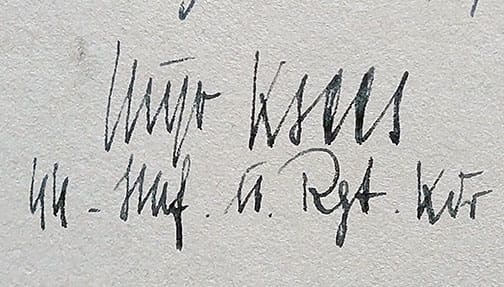 Hugo Kraas
SS - Staf. u. Rgt. Kdr